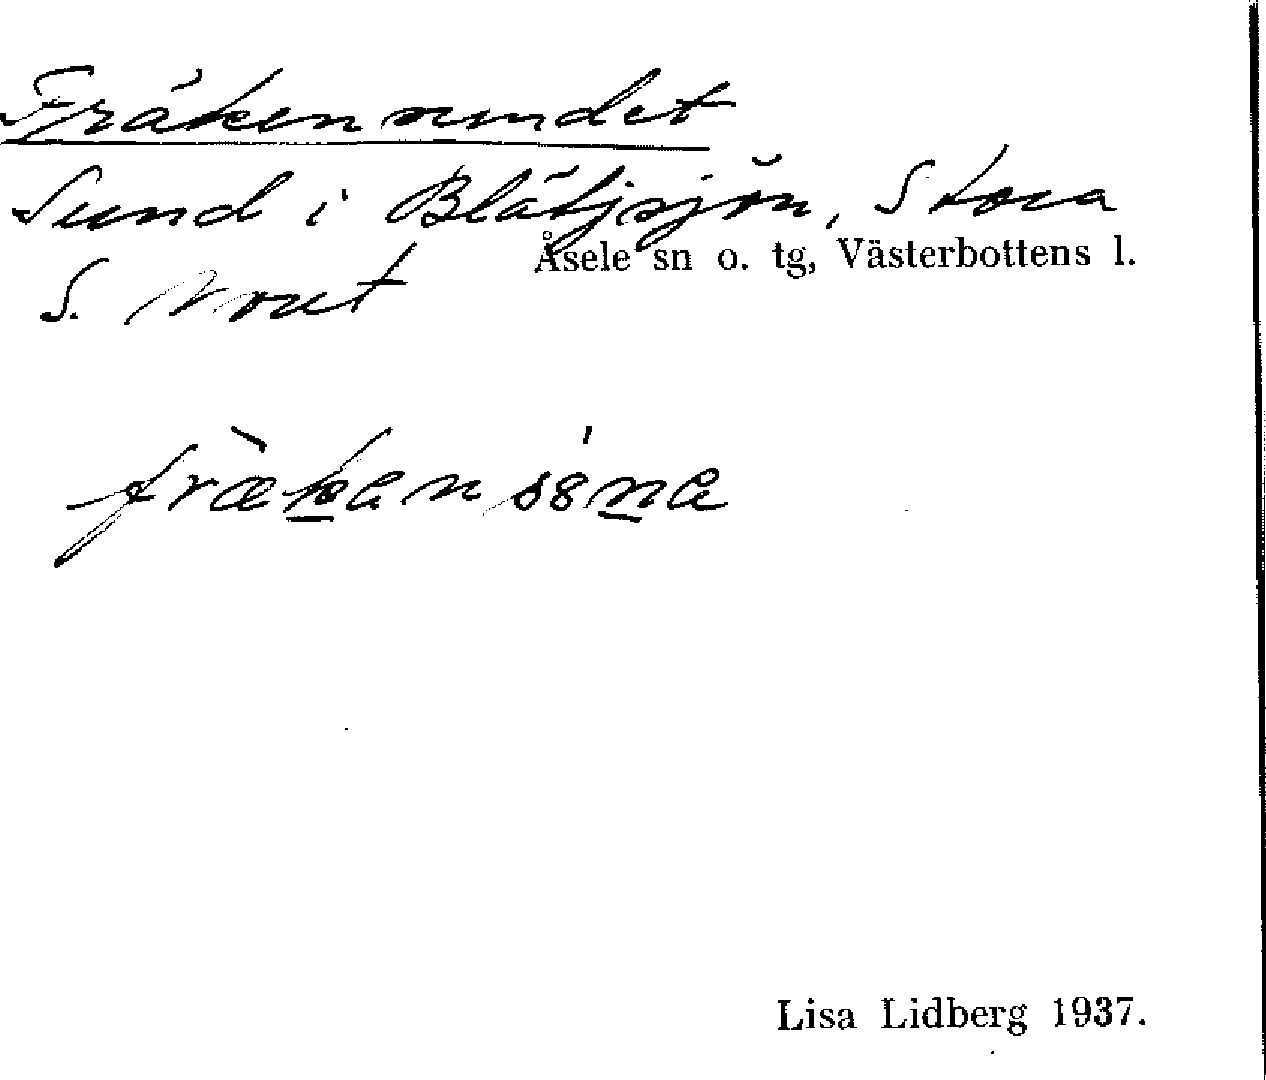 Fräkensundet
Sund i Blåtjsjön, Stora
Åsele sn o. tg, Västerbottens l.
frækan søna
Lisa Lidberg 1937.